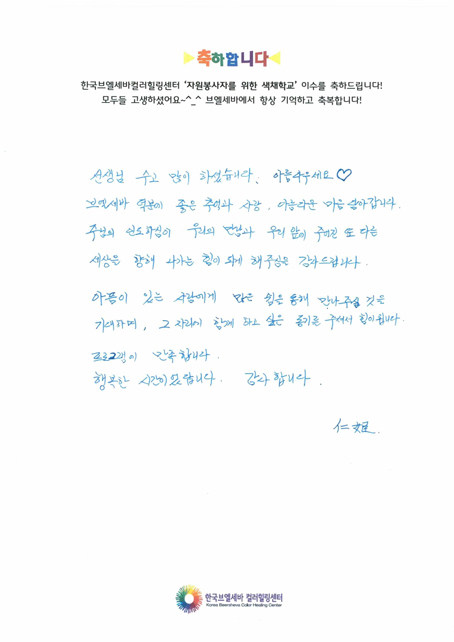 축하합니다
한국브엘세바컬러힐링센터 '자원봉사자를 위한 색채학교' 이수를 축하드립니다!
모두들 고생하셨어요~^_^ 브엘세바에서 항상 기억하고 축복합니다!
선생님 수고 많이 하셨습니다. 아름다우세요♡
브엘세바 덕분에 좋은 추억과 사랑, 아름다운 마음 담아갑니다.
주님의 인도하심이 우리의 만남과 우리 앞에 주어진 또 다른
세상을 향해 나가는 힘이 되게 해주심은 감사드립니다.
아픔이 있는 사람에게 많은 쉼을 통해 만나주실 것을
기대하며, 그 자리에 함께 하고 싶은 용기를 주셔서 힘이 됩니다.
프로그램이 만족합니다.
행복한 시간이었습니다. 감사합니다.
仁姬
한국브엘세바 컬러힐링센터
Korea Beersheva Color Healing Center